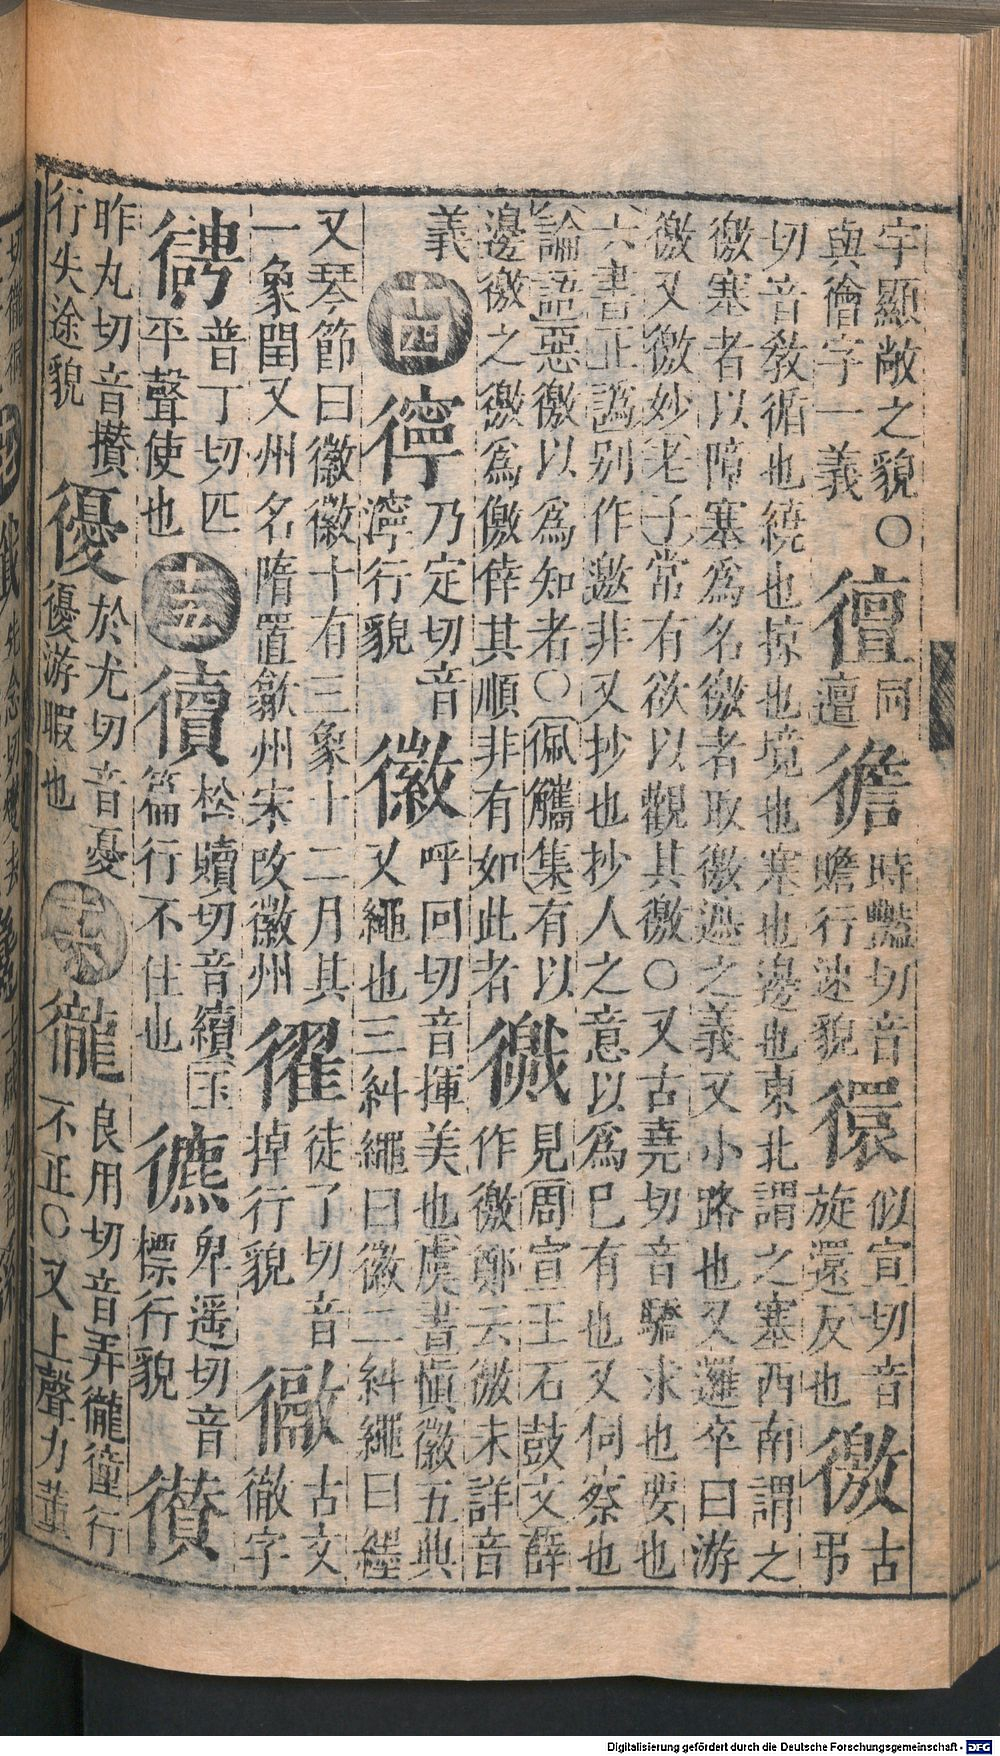 宇顯敞之貌〇𢕊同 時豔切音 似宣切音 古
與儈字一義 邅 贍行速貌 旋還反也 徼弔
切音敎循也繞也掠也境也塞也邊也東北謂之塞西南謂之
徼塞者以障塞爲名徼者取徼遮之義又小路也又邏卒曰游
徼又微妙老子常有欲以觀其徼〇又古堯切音驕求也要也
六書正譌别作邀非又抄也抄人之意以爲巳有也又伺察也
論語惡徼以爲知者〇佩觿集有以 見周宣王石鼓文薛
邊徼之徼爲儌倖其順非有如此者 作徼鄭云徼未詳音
義 十四 乃定切音 徽呼回切音揮美也虞書愼徽五典
濘行貌 又繩也三糾繩曰徽二糾繩曰纆
又琴節曰徽徽十有三象十二月其 徒了切音 古文
一象閏又州名隋置歙州宋改徽州 掉行貌 徹字
普丁切匹 十五 松贖切音續玉 卑遥切音
平聲使也 篇行不住也 標行貌
昨丸切音攢 於尤切音憂 十六 良用切音弄徿徸行
行失途貌 優游暇也 徿不正〇又上聲力董
Digitalisierung gefördert durch die Deutsche Forschungsgemeinschaft - DFG